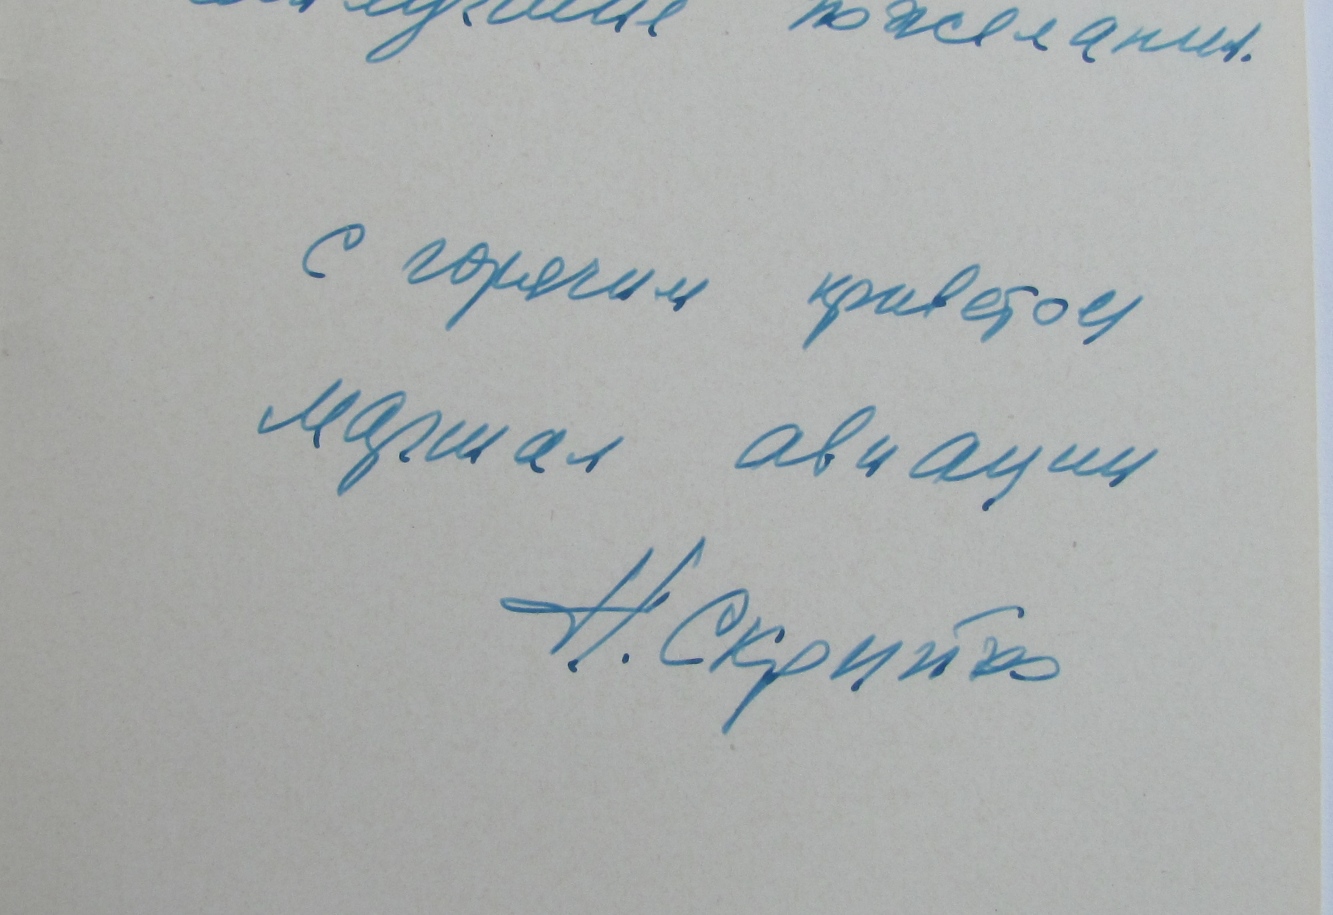 наилучшие пожелания.
С горячим приветом
Маршал авиации
Н. Скрипко